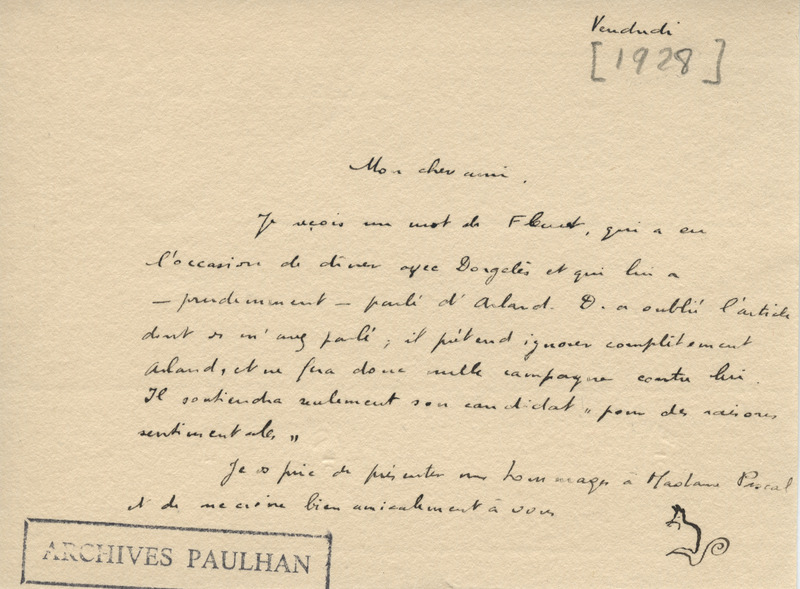 Vendredi
[1928]
Mon cher ami,
Je reçois un mot de Fleuret, qui a eu
l'occasion de dîner avec Dorgelès et qui lui a
— prudemment — parlé d'Arland. D. a oublié l'article
dont vs m'avez parlé ; il prétend ignorer complètement
Arland, et ne fera donc nulle campagne contre lui.
Il soutiendra seulement son candidat " pour des raisons
sentimentales "
Je vs prie de présenter mes hommages à Madame Pascal
et de me croire bien amicalement à vous
ARCHIVES PAULHAN